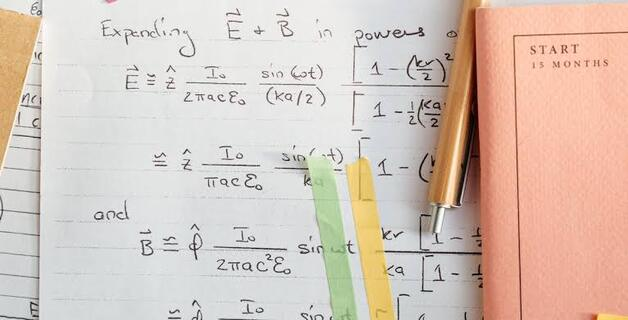 Expanding E⃗ + B⃗ in powers o
E⃗ ≅ ẑ I₀/2πacε₀ sin(ωt)/(ka/2) [1 - (kr/2)²/[1 - ½(ka/2
≅ ẑ I₀/πacε₀ sin(ωt)/ka [1 - (
and
B⃗ ≅ φ̂ I₀/2πac²ε₀ sin ωt kr/ka [1 - ½/[1 - ½
≅ φ̂ I₀ sin
START
15 MONTHS